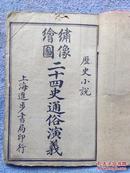 歷史小說
繡像
繪圖
二十四史通俗演義
上海進步書局印行